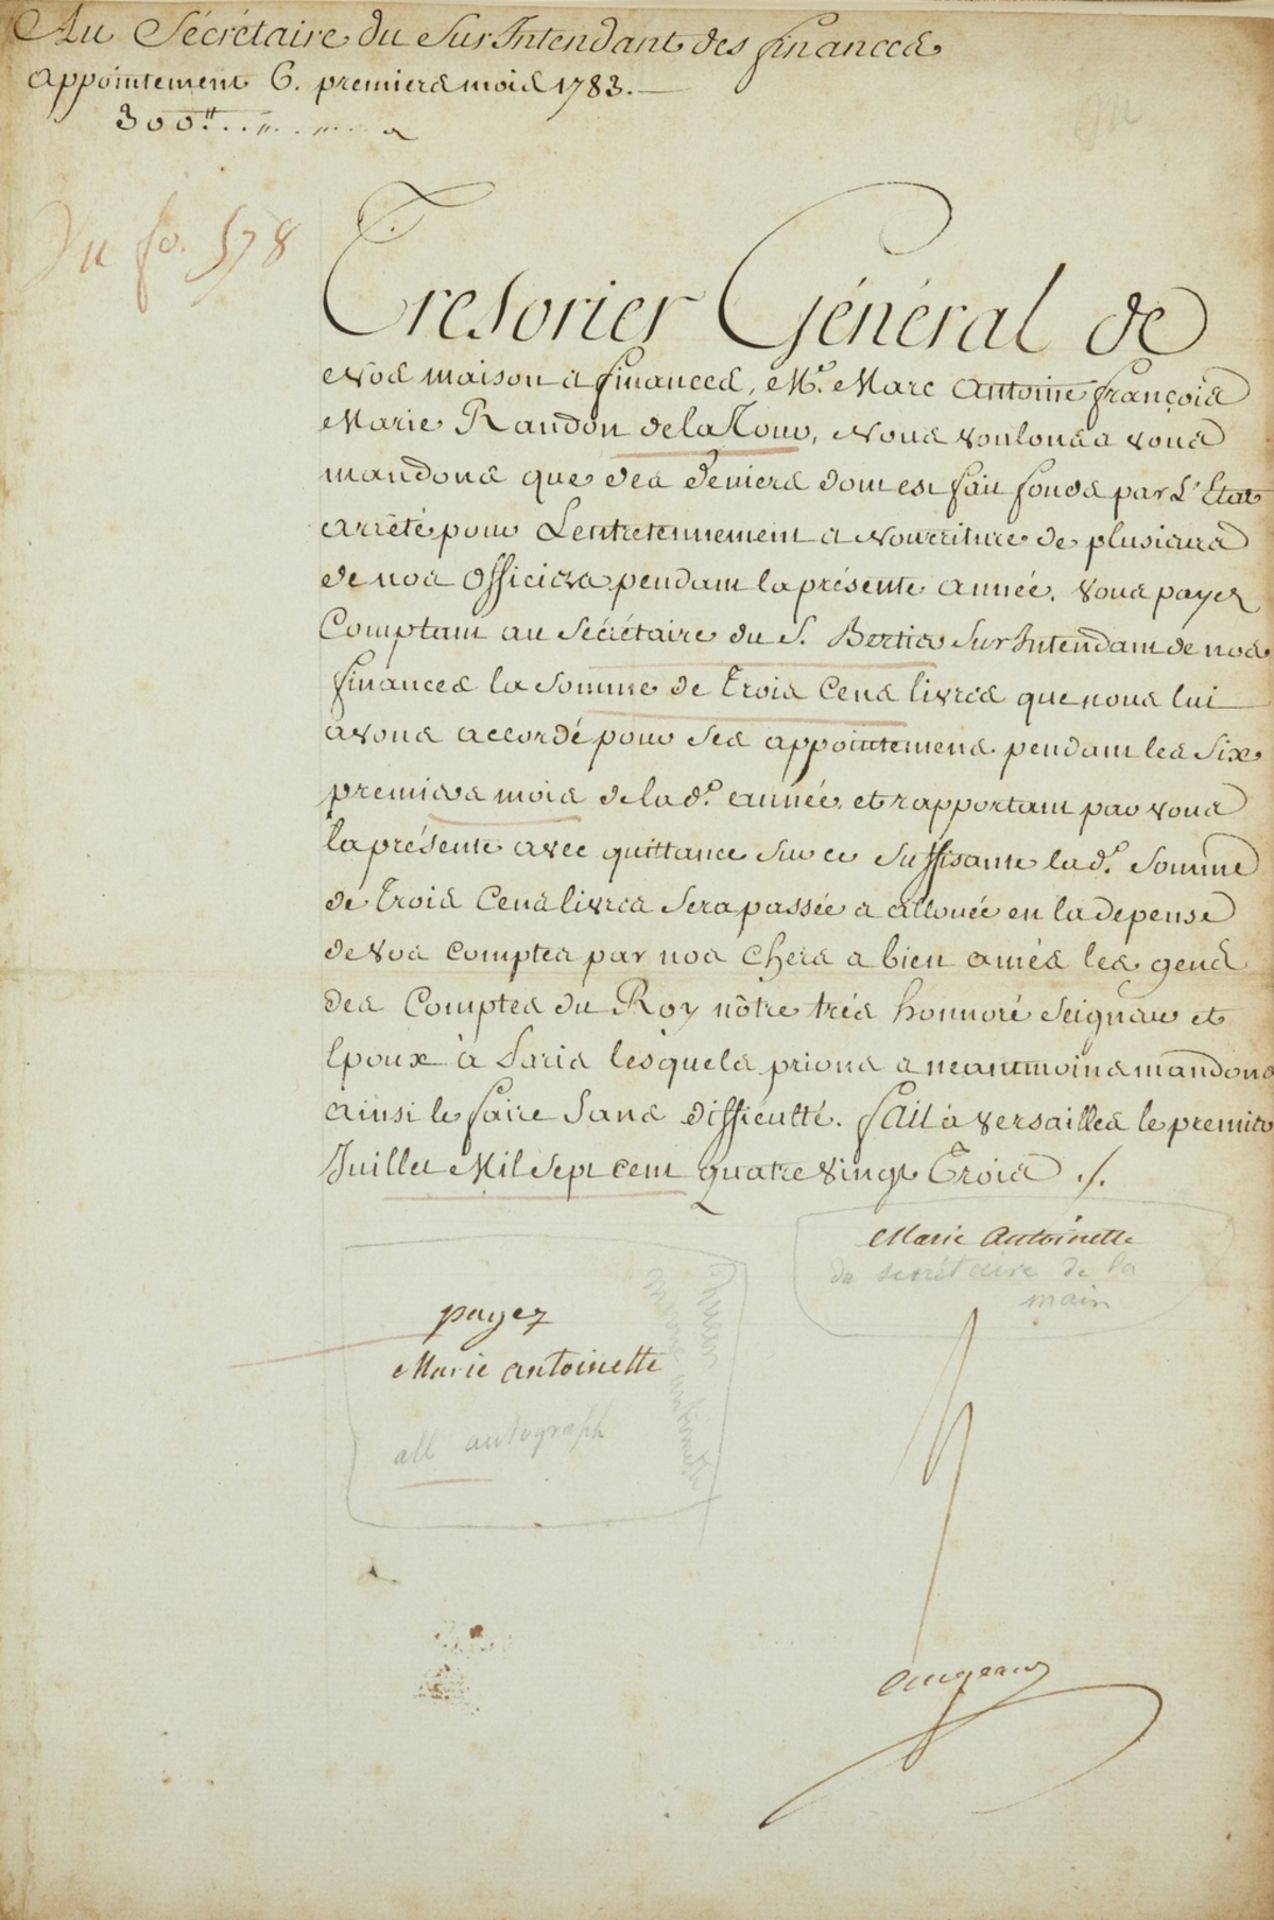 Au Sécrétaire du Sur Intendant des finances
appointement 6. premiers mois 1783.
300.tt
Vu fo. 578
Tresorier Général de
Nos maison et finances, Me. Marc Antoine françois
Marie Randon de la Tour, Nous voulons et vous
mandons que des deniers dont est fait fonds par L'Etat
arrêté pour L'entretennement et Nourriture de plusieurs
de nos officiers pendant la présente année, vous payez
Comptant au Sécrétaire du S. Bertier Sur Intendant de nos
finances la Somme de Trois Cens livres que nous lui
avons accordé pour ses appointemens pendant les Six
premiers mois de la de. année, et rapportant par vous
la présente avec quittance sur ce suffisante la de. Somme
de Trois Cens livres sera passée et allouée en la depense
de vos comptes par nos chers et bien amés les gens
des Comptes du Roy nôtre très honnoré Seigneur et
Epoux à Paris lesquels prions et neantmoins mandons
ainsi le faire sans difficulté. fait à versailles le premier
Juillet Mil Sept cent quatre vingt Trois ./.
Marie Antoinette
du secrétaire de la
main
payez
Marie antoinette
all autograph
payez
marie antoinette
augeard